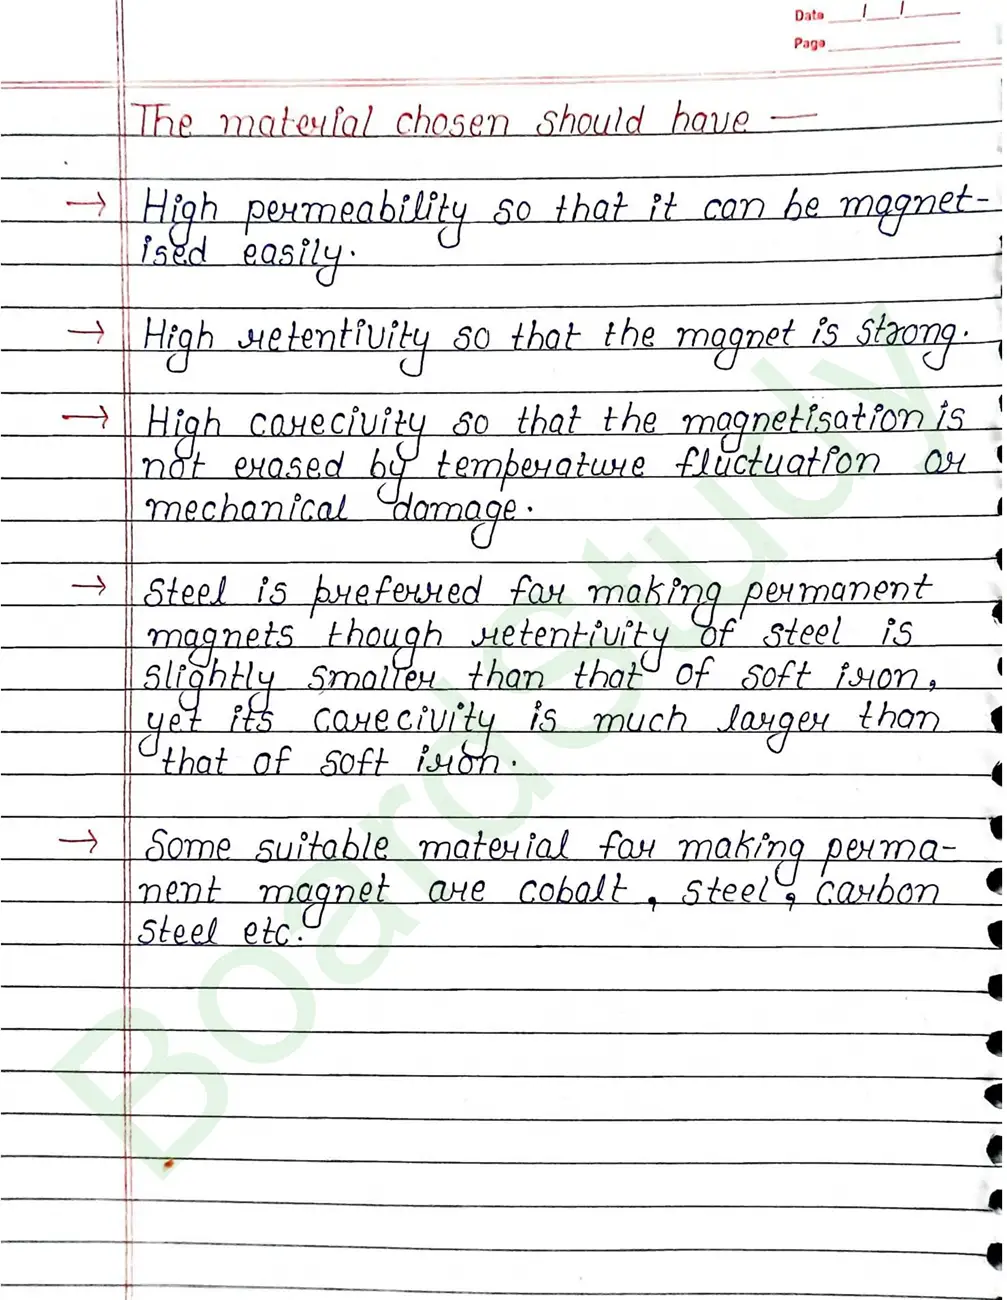 Date / /
Page
The material chosen should have —
→ High permeability so that it can be magnet-
ised easily.
→ High retentivity so that the magnet is strong.
→ High corecivity so that the magnetisation is
not erased by temperature fluctuation or
mechanical damage.
→ Steel is preferred for making permanent
magnets though retentivity of steel is
slightly smaller than that of soft iron,
yet its corecivity is much larger than
that of soft iron.
→ Some suitable material for making perma-
nent magnet are cobalt, steel, carbon
steel etc.
BoardStudy